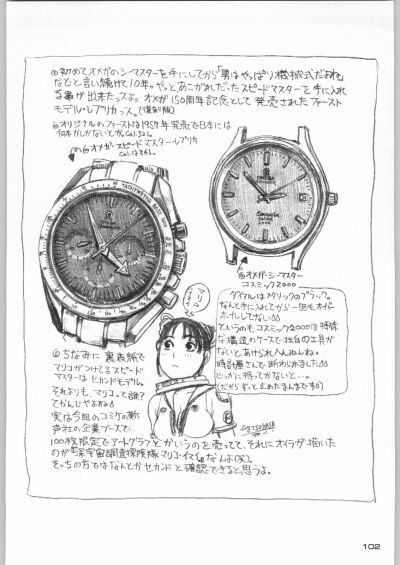 ◎初めてオメガのシーマスターを手にしてから「男はやっぱり機械式だよね」
などと言い続けて10年。やっとあこがれだったスピードマスターを手に入れ
る事が出来たっスよ。オメガ150周年記念として発売されたファースト
モデル・レプリカっス。(復刻版)
◎オリジナルのファーストは1957年発売で日本には
何本かしかないとか。Cal.321。
◎オメガ・スピードマスター・レプリカ
Cal.1861。
TACHYMETRE
OMEGA
OMEGA
AUTOMATIC
Seamaster
COSMIC
2000
◎オメガ・シーマスター
コスミック2000
ダイヤルはメタリックのブラック。
なんて手に入れてから一回もオーバー
ホールしてない
というのも、コスミック2000は特殊
な構造のケースで独自の工具が
ないとあけられへんねんね。
時計屋さんで断わられました
どっかに持ってかないと…。
(だからずっと止めたまんまです)
マリコ
◎ちなみに裏表紙で
マリコがつけてるスピード
マスターはセカンドモデル。
それよりも、マリコって誰?
てかんじやよねぇ
実は今回のコミケの新
声社の企業ブースで
100枚限定でアートグラフとかいうのを売ってて、それにオイラが描いた
のが『深宇宙調査探検隊マリコ・イマイ』なんよ(笑)。
そっちの方ではなんとかセカンドと確認できると思うよ。
By TSUKASA
102